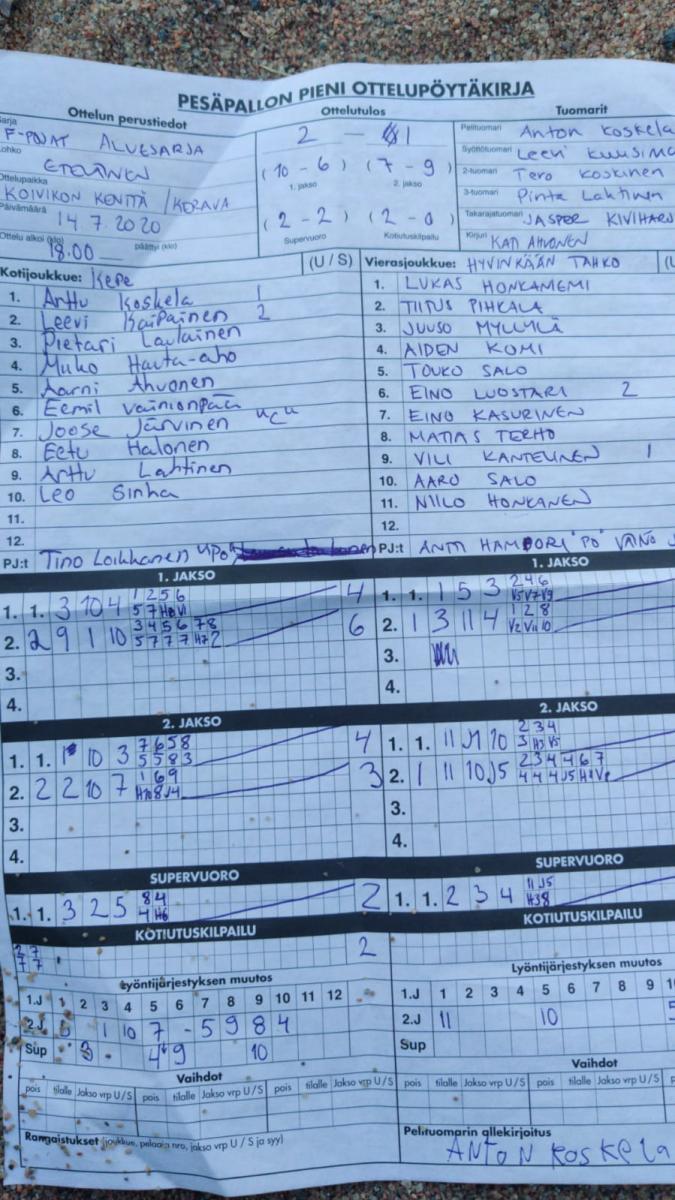 PESÄPALLON PIENI OTTELUPÖYTÄKIRJA
Ottelun perustiedot
Sarja
F-POJAT ALUESARJA
Lohko
ETELÄINEN
Ottelupaikka
KOIVIKON KENTTÄ / KERAVA
Päivämäärä
14.7.2020
Ottelu alkoi (klo) 18.00 päättyi (klo)
Ottelutulos
2 – 1
(10 – 6) (7 – 9)
1. jakso 2. jakso
(2 – 2) (2 – 0)
Supervuoro Kotiutuskilpailu
Tuomarit
Pelituomari Anton Koskela
Syöttötuomari Leevi
2-tuomari Tero Koskinen
3-tuomari Pinta Lahtinen
Takarajatuomari JASPER
Kirjuri KATI AHVONEN
Kotijoukkue: KePe (U / S)
1. Arttu Koskela 1
2. Leevi Kaipainen 2
3. Pietari Laulainen
4. Muko Hauta-aho
5. Aarni Ahvonen
6. Eemil Vainionpää
7. Joose Järvinen "C"
8. Eetu Halonen
9. Arttu Lahtinen
10. Leo Sinha
11.
12.
PJ:t Tino Loikkanen "PO"
Vierasjoukkue: HYVINKÄÄN TAHKO
1. LUKAS HONKANIEMI
2. TIITUS PIHKALA
3. JUUSO MYLLYLÄ
4. AIDEN KOMI
5. TOUKO SALO
6. EINO LUOSTARI 2
7. EINO KASURINEN
8. MATIAS TERHO
9. VILI KANTELINEN 1
10. AARO SALO
11. NIILO HONKANEN
12.
PJ:t ANTTI "PO" VÄINÖ
1. JAKSO
1. 1. 3 10 4 1 2 5 6 4
5 7 H8 V1
2. 2 9 1 10 3 4 5 6 7 8 6
5 7 7 7 H7 2
3.
4.
1. JAKSO
1. 1. 1 5 3 2 4 6
V5 V7 V9
2. 1 3 11 4 1 2 8
V2 V11 10
3.
4.
2. JAKSO
1. 1. 1 10 3 7 6 5 8 4
5 5 8 3
2. 2 2 10 7 1 6 9 3
H10 8 J4
3.
4.
2. JAKSO
1. 1. 11 J1 10 2 3 4
3 H3 V5
2. 1 11 10 J5 2 3 4 4 6 7
4 4 4 J5 H8
3.
4.
SUPERVUORO
1. 1. 3 2 5 8 4 2
4 H6
SUPERVUORO
1. 1. 2 3 4 11 J5
H3 8
KOTIUTUSKILPAILU
2 7 2
7 7
KOTIUTUSKILPAILU
Lyöntijärjestyksen muutos
1.J 1 2 3 4 5 6 7 8 9 10 11 12
2.J 1 10 7 - 5 9 8 4
Sup 3 4 9 10
Lyöntijärjestyksen muutos
1.J 1 2 3 4 5 6 7 8 9
2.J 11 10
Sup
Vaihdot
pois tilalle Jakso vrp U / S pois tilalle Jakso vrp U / S pois tilalle Jakso vrp U / S
Vaihdot
pois tilalle Jakso vrp U / S pois tilalle Jakso vrp U / S
Rangaistukset (joukkue, pelaaja nro, jakso vrp U / S ja syy)
Pelituomarin allekirjoitus
ANTON KOSKELA